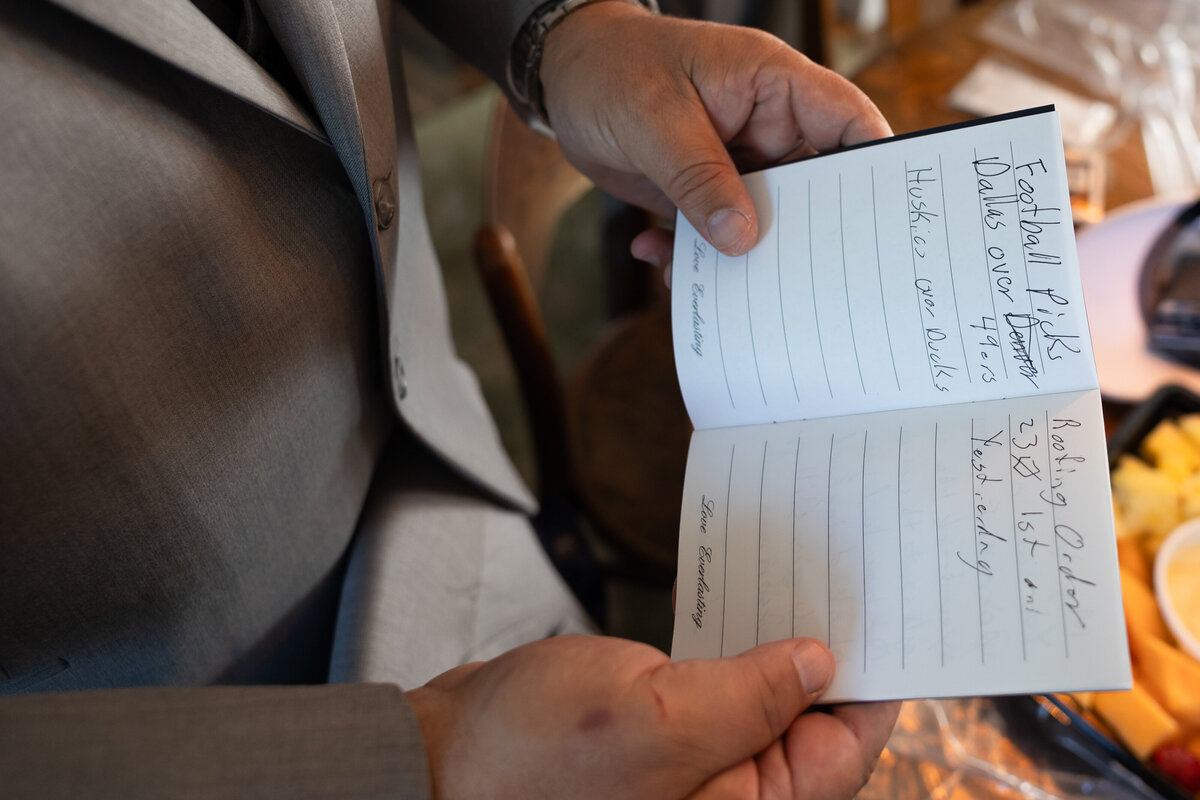 Football Picks
Dallas over Denver 49ers
Huskies over Ducks
Love Everlasting
Roofing Order
1st
Love Everlasting